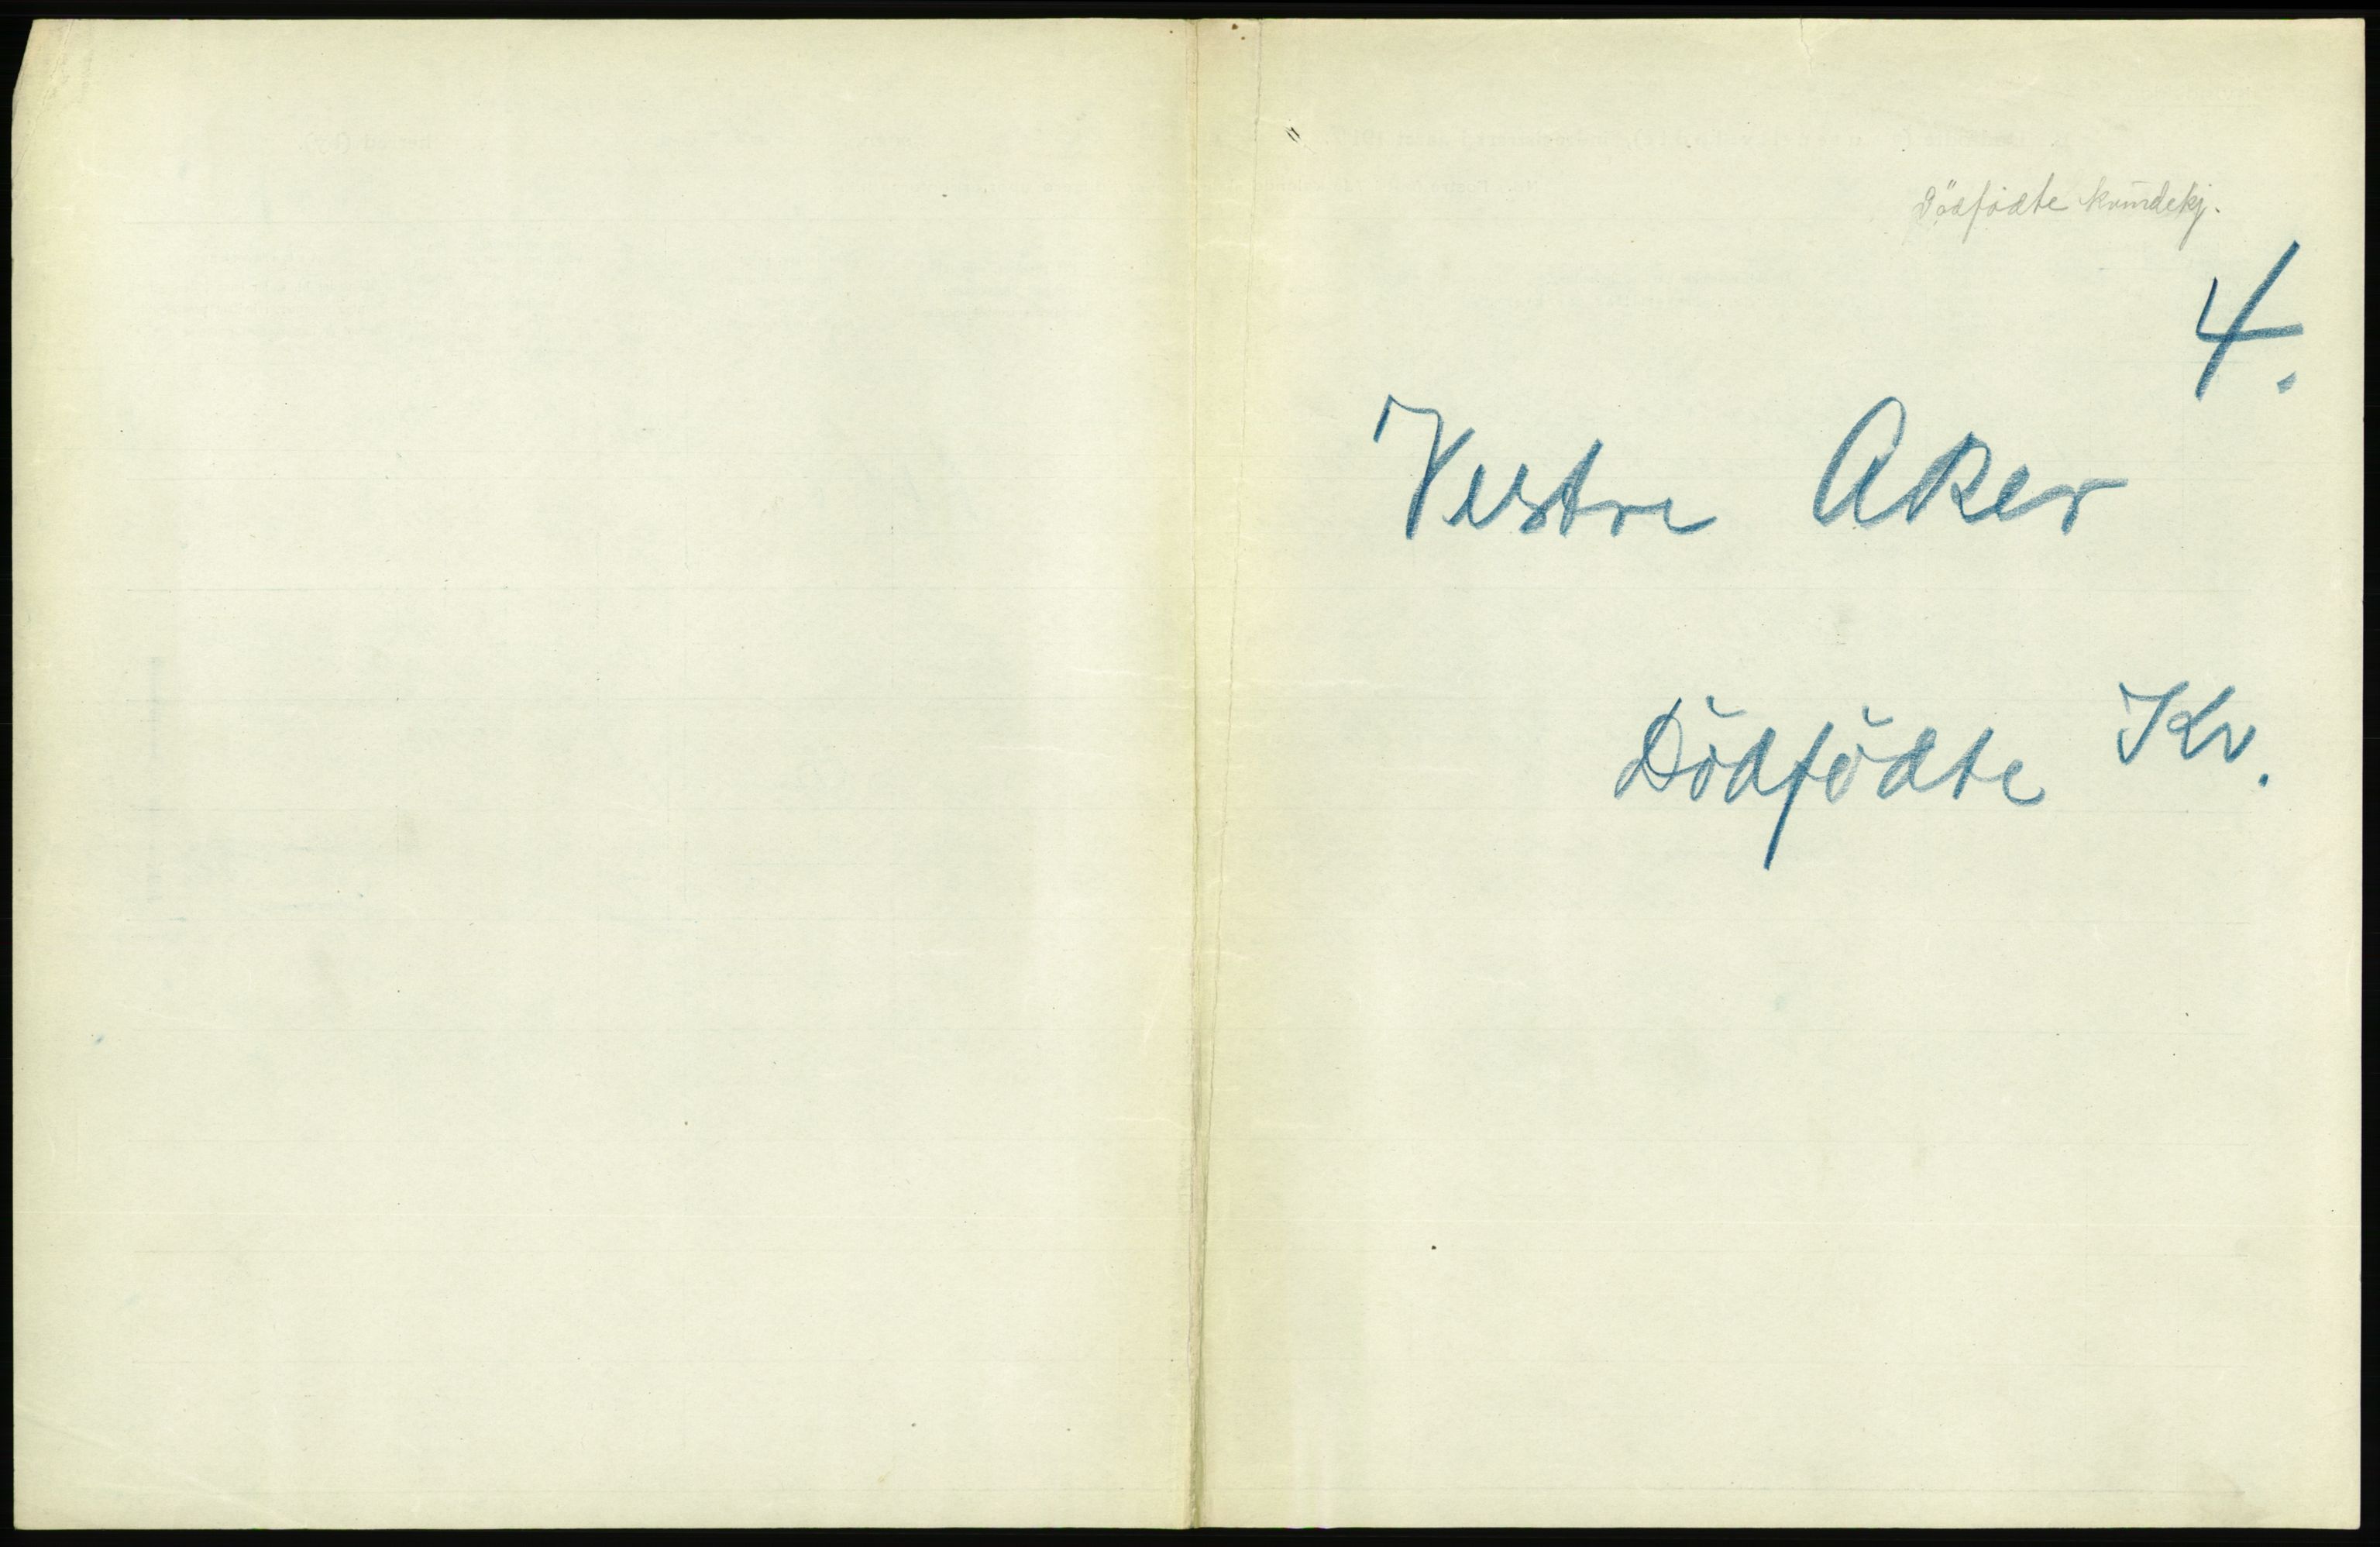 Dödfödte kvindekj.
4.
Vestre Aker
Dödfödte Kv.